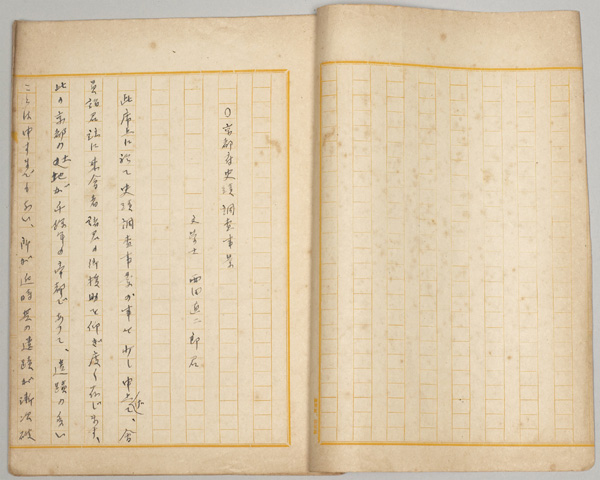 ○京都府史蹟調査事業
文学士 西田直二郎君
此席上に於て史蹟調査事業の事を少し申上て、会
員諸君並に来会者諸君の御援助を仰ぎ度く存じます、
此の京都の土地が千餘年の帝都であつて、遺蹟の多い
ことは申すまでもない、所が近時其の遺蹟が漸次破